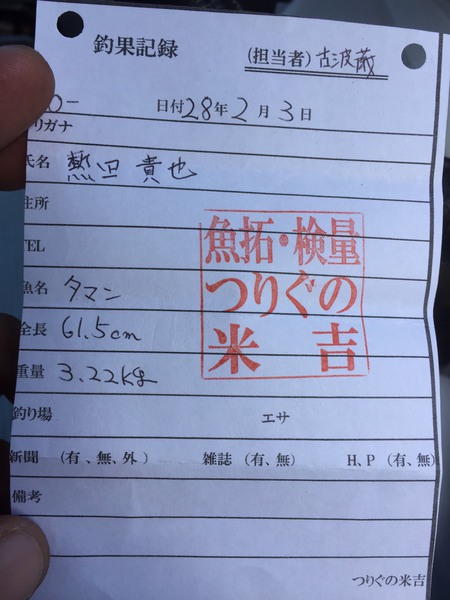 釣果記録
(担当者) 古波蔵
日付 28年 2月 3日
リガナ
氏名 熱田 貴也
住所
TEL
魚拓・検量
つりぐの
米吉
魚名 タマン
全長 61.5cm
重量 3.22kg
釣り場 エサ
新聞 (有、無、外) 雑誌 (有、無) H、P (有、無)
備考
つりぐの米吉